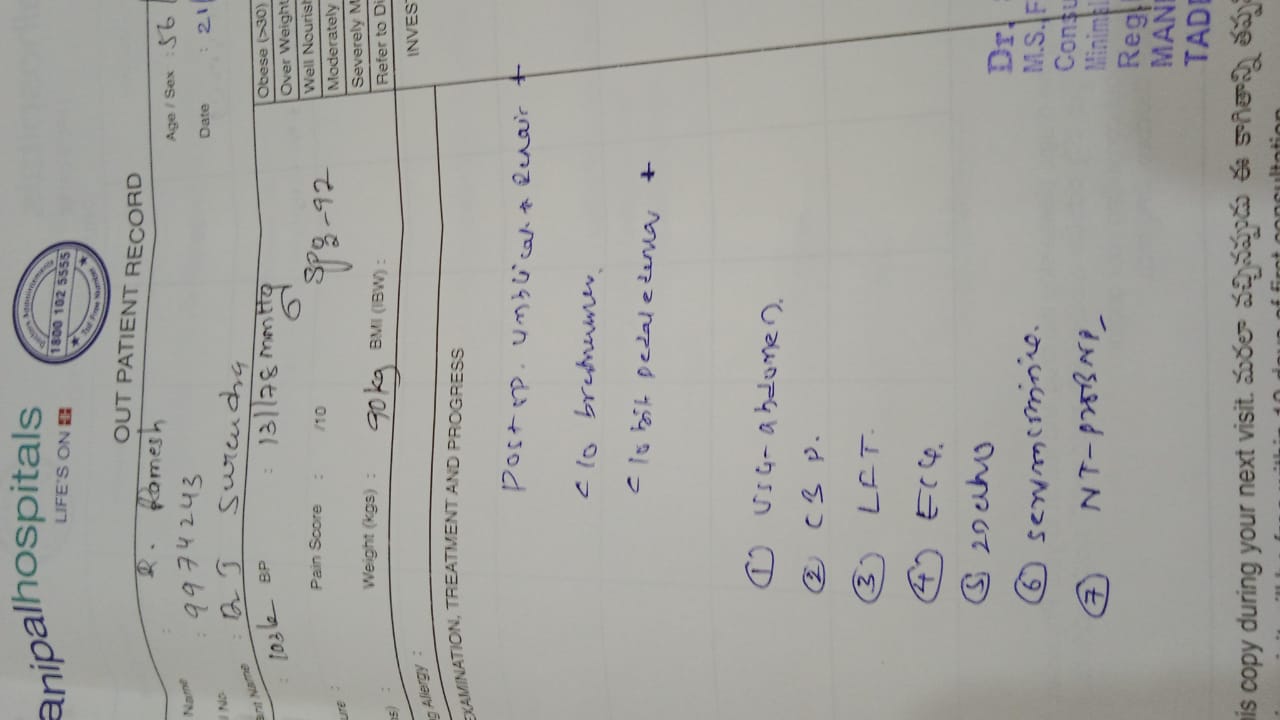 anipalhospitals
LIFE'S ON
1800 102 5555
Toll Free Number
OUT PATIENT RECORD
Name : R. Ramesh
Age / Sex : 56
No. : 9974243
Date : 21
nt Name : Dr T Surendra
BP : 131/78 mmHg
Pain Score : /10
Spo2 - 92
Weight (kgs) : 90kg BMI (IBW) :
Obese (>30)
Over Weight
Well Nourish
Moderately
Severely M
Refer to Di
g Allergy :
INVEST
EXAMINATION, TREATMENT AND PROGRESS
Post op. umbilical Repair +
c/o
c/o bil. pedal edema +
① USG - abdomen.
② CBP.
③ LFT.
④ ECG.
⑤ 2D echo
⑥ serum creatinine.
⑦ NT-proBNP
Dr.
M.S., F
Consu
Minimal
Reg.
MANI
TADE
is copy during your next visit.